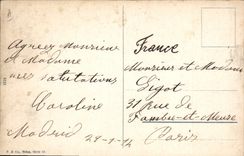 Agréez Monsieur
et Madame
mes salutations
Caroline
Madrid 29-1-14
France
Monsieur et Madame
Gigot
31 Rue de
Paris